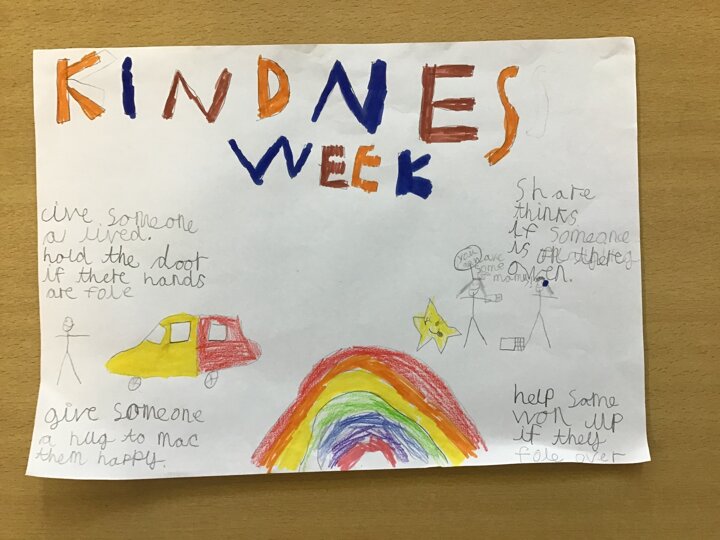 KINDNESS
WEEK
Give someone
a lived.
hold the door
if there hands
are fole
Share
thinks
if someone
is on there
owen.
you
have
some
give someone
a hug to mac
them happy.
help some
won up
if they
fole over